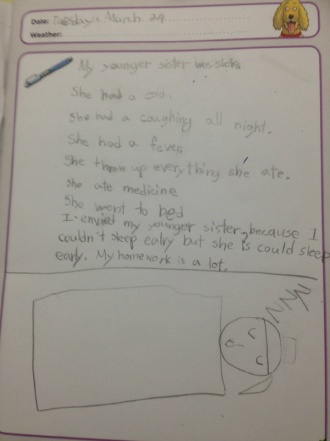 Date: Tuesday, March 24
Weather:
My younger sister was sick
She had a cold.
She had a coughing all night.
She had a fever
She threw up everything she ate.
She ate medicine
She went to bed
I envied my younger sister, because I
couldn't sleep ealry but she is could sleep
early. My homework is a lot.